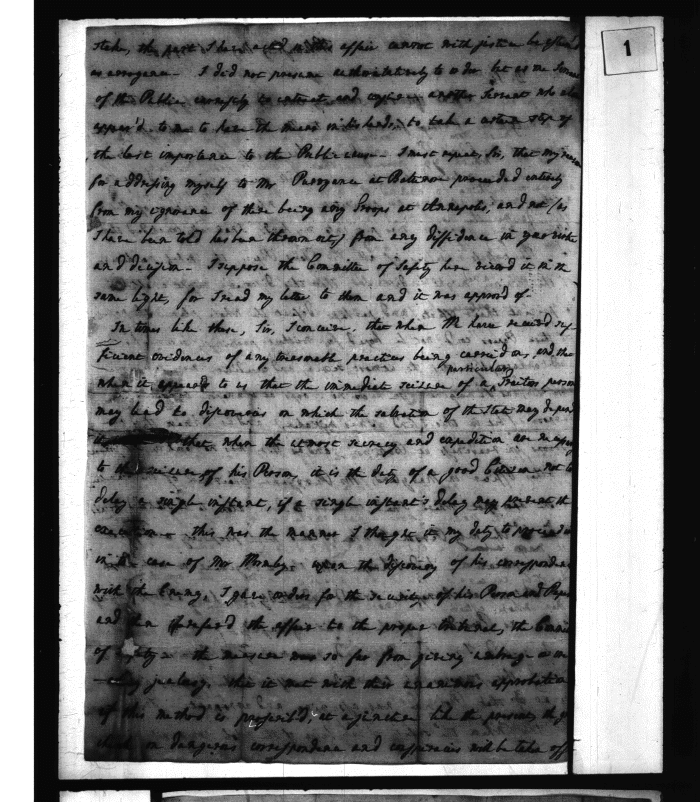 1
stake, the part I have acted in this affair cannot with justice be
as arrogance - I did not presume authoritatively to order but as one Servant
of the Public
appear'd to me to have the means in his hands, to take a certain step of
the last importance to the Public cause - I must repeat, Sir, that my reason
for addressing myself to Mr Purviance at Baltimore proceeded entirely
from my ignorance of there being any Troops at Annapolis, and not (as
I have been told has been thrown out) from any diffidence in your
and decision - I suppose the Committee of Safety here view'd it in the
same light, for I read my letter to them and it was approv'd of -
In times like these, Sir, I conceive, that when We have receiv'd suf-
ficient evidences of any treasonable practices being carried on, and that
when it appears to us that the immediate seizure of a particular Traitors person
may lead to discoveries on which the salvation of the State may depend
that when the utmost secrecy and expedition are necessary
to the seizure of his Person, it is the duty of a good Citizen not to
delay a single instant, if a single instant's delay may prevent the
execution - this was the manner I thought it my duty to proceed
in the case of Mr Wormley - upon the discovery of his correspondence
with the Enemy, I gave orders for the security of his Person and Papers
and then refer'd the affair to the proper tribunal, the Committee
of Safety - the measure was so far from giving umbrage or
jealousy, that it met with their unanimous approbation
if this method is
correspondence and conspiracies will be